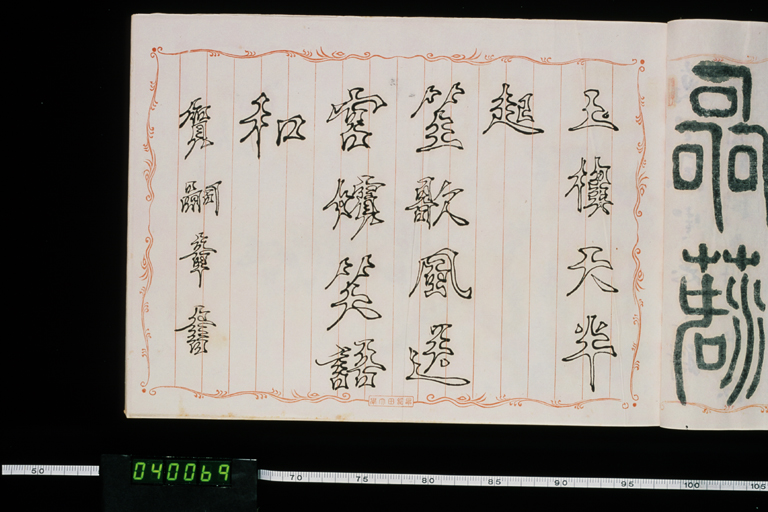 玉樓天半
起
笙歌風送
宮嬪笑語
和
賀嗣章書
5.0 040069 7.0 7.5 8.0 8.5 9.0 9.5 10.0 10.5